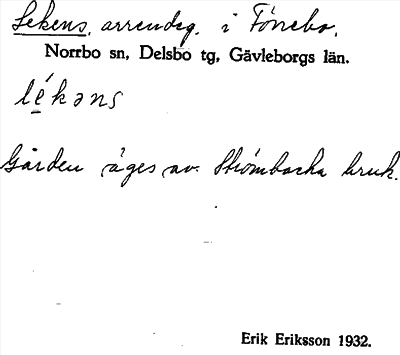 Lekens, arrendeg. i Fönebo.
Norrbo sn, Delsbo tg, Gävleborgs län.
lé̱kəns
Gården äges av Strömbacka bruk.
Erik Eriksson 1932.